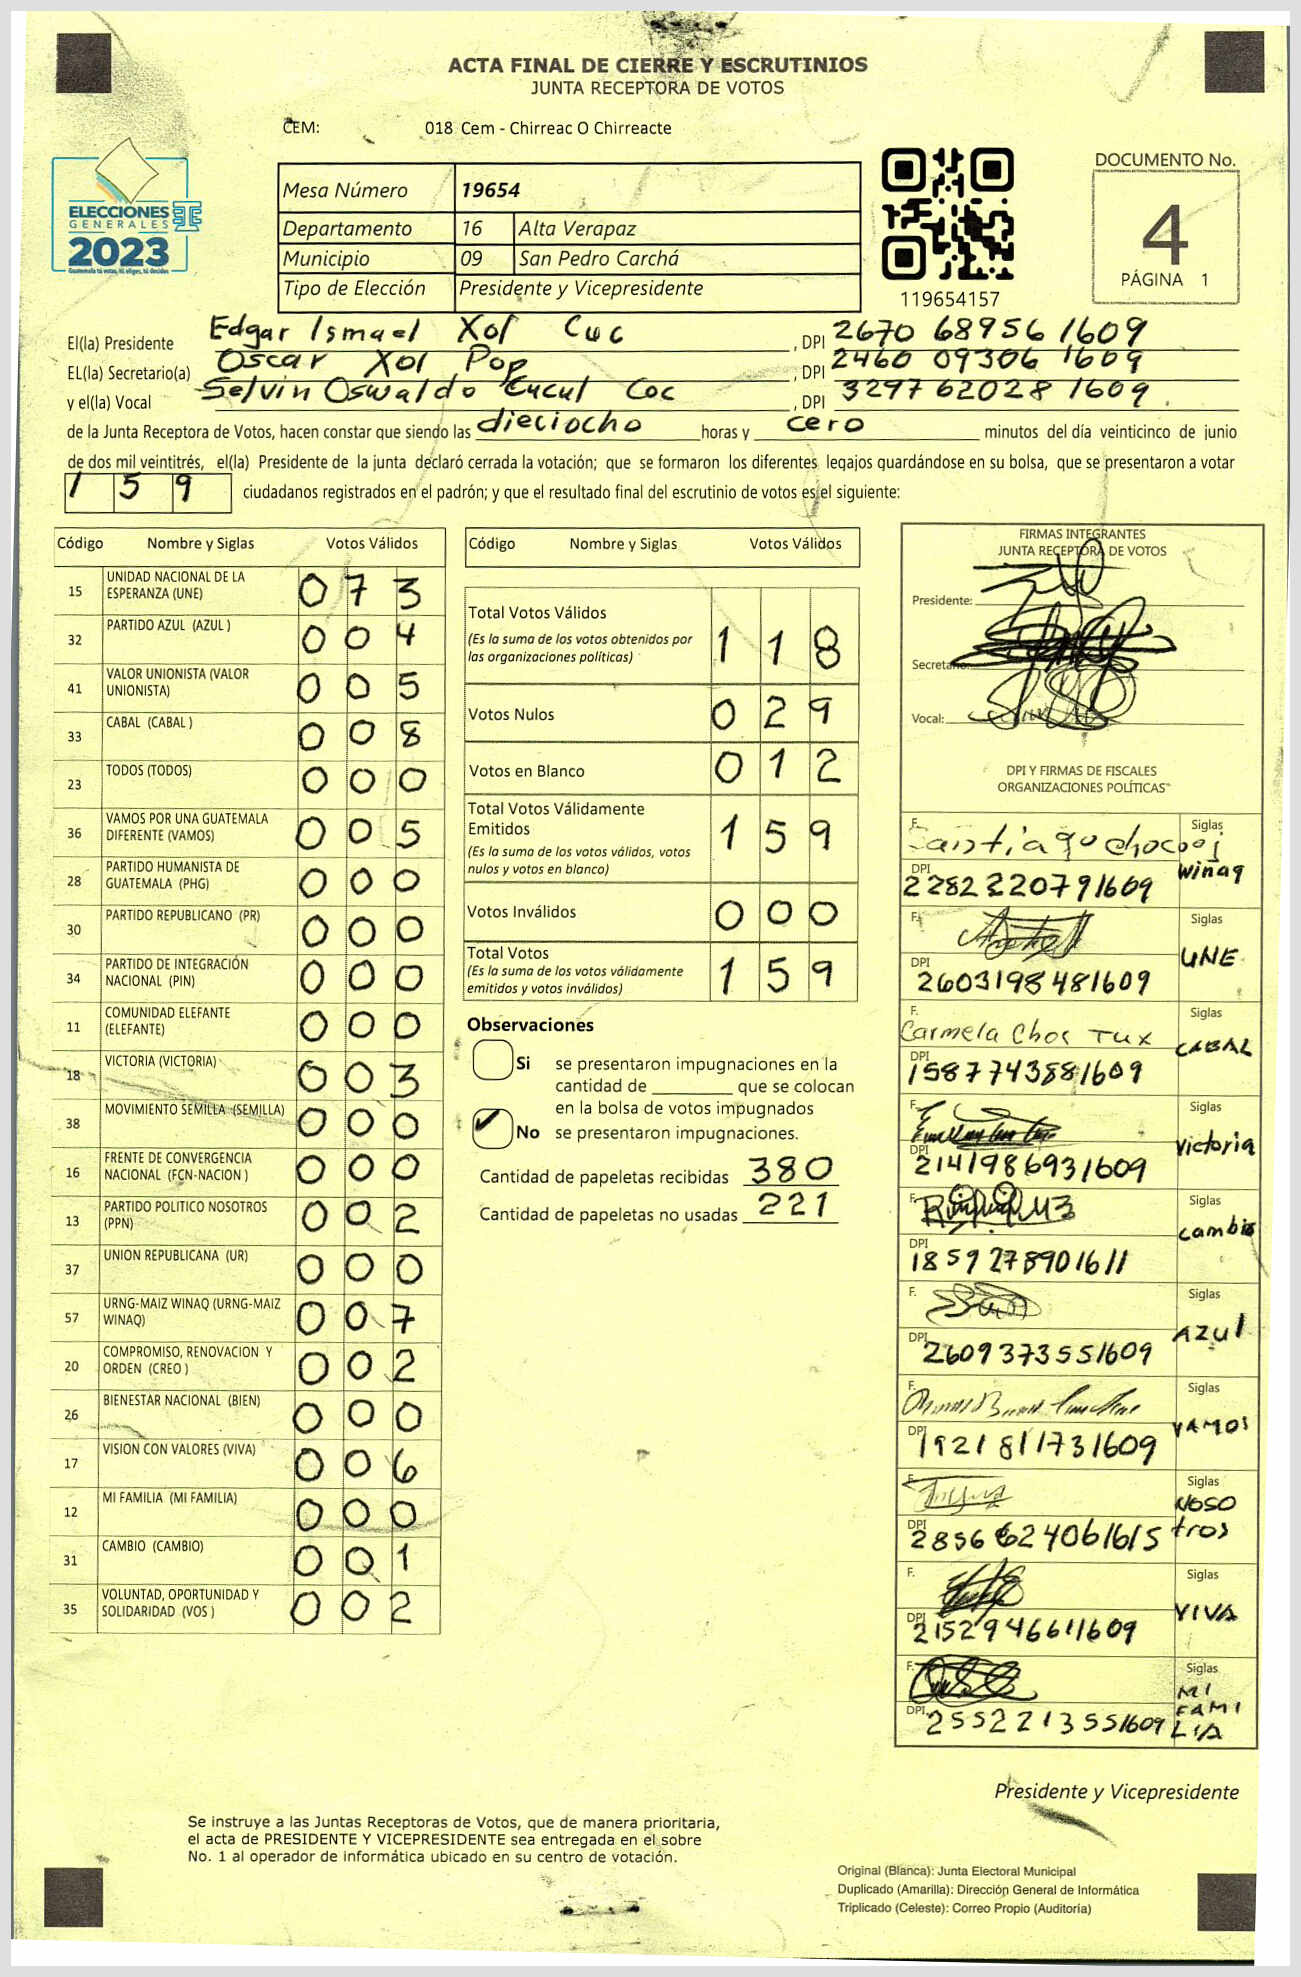 ACTA FINAL DE CIERRE Y ESCRUTINIOS
JUNTA RECEPTORA DE VOTOS
CEM: 018 Cem - Chirreac O Chirreacte
ELECCIONES
GENERALES
2023
Guatemala tú votas, tú eliges, tú decides
Mesa Número 19654
Departamento 16 Alta Verapaz
Municipio 09 San Pedro Carchá
Tipo de Elección Presidente y Vicepresidente
119654157
DOCUMENTO No.
4
PÁGINA 1
El(la) Presidente Edgar Ismael Xol Cuc , DPI 2670 68956 1609
EL(la) Secretario(a) Oscar Xol Pop , DPI 2460 09306 1609
y el(la) Vocal Selvin Oswaldo Cucul Coc , DPI 3297 62028 1609 .
de la Junta Receptora de Votos, hacen constar que siendo las dieciocho horas y cero minutos del día veinticinco de junio
de dos mil veintitrés, el(la) Presidente de la junta declaró cerrada la votación; que se formaron los diferentes legajos guardándose en su bolsa, que se presentaron a votar
1 5 9 ciudadanos registrados en el padrón; y que el resultado final del escrutinio de votos es el siguiente:
Código Nombre y Siglas Votos Válidos
15 UNIDAD NACIONAL DE LA ESPERANZA (UNE) 0 7 3
32 PARTIDO AZUL (AZUL ) 0 0 4
41 VALOR UNIONISTA (VALOR UNIONISTA) 0 0 5
33 CABAL (CABAL ) 0 0 8
23 TODOS (TODOS) 0 0 0
36 VAMOS POR UNA GUATEMALA DIFERENTE (VAMOS) 0 0 5
28 PARTIDO HUMANISTA DE GUATEMALA (PHG) 0 0 0
30 PARTIDO REPUBLICANO (PR) 0 0 0
34 PARTIDO DE INTEGRACIÓN NACIONAL (PIN) 0 0 0
11 COMUNIDAD ELEFANTE (ELEFANTE) 0 0 0
18 VICTORIA (VICTORIA) 0 0 3
38 MOVIMIENTO SEMILLA (SEMILLA) 0 0 0
16 FRENTE DE CONVERGENCIA NACIONAL (FCN-NACION ) 0 0 0
13 PARTIDO POLITICO NOSOTROS (PPN) 0 0 2
37 UNION REPUBLICANA (UR) 0 0 0
57 URNG-MAIZ WINAQ (URNG-MAIZ WINAQ) 0 0 7
20 COMPROMISO, RENOVACION Y ORDEN (CREO ) 0 0 2
26 BIENESTAR NACIONAL (BIEN) 0 0 0
17 VISION CON VALORES (VIVA) 0 0 6
12 MI FAMILIA (MI FAMILIA) 0 0 0
31 CAMBIO (CAMBIO) 0 0 1
35 VOLUNTAD, OPORTUNIDAD Y SOLIDARIDAD (VOS ) 0 0 2
Código Nombre y Siglas Votos Válidos
Total Votos Válidos 1 1 8
(Es la suma de los votos obtenidos por
las organizaciones políticas)
Votos Nulos 0 2 9
Votos en Blanco 0 1 2
Total Votos Válidamente
Emitidos 1 5 9
(Es la suma de los votos válidos, votos
nulos y votos en blanco)
Votos Inválidos 0 0 0
Total Votos 1 5 9
(Es la suma de los votos válidamente
emitidos y votos inválidos)
Observaciones
Si se presentaron impugnaciones en la
cantidad de ________ que se colocan
en la bolsa de votos impugnados
No se presentaron impugnaciones.
Cantidad de papeletas recibidas 380
Cantidad de papeletas no usadas 221
FIRMAS INTEGRANTES
JUNTA RECEPTORA DE VOTOS
Presidente:
Secretario:
Vocal:
DPI Y FIRMAS DE FISCALES
ORGANIZACIONES POLÍTICAS
F. Santiago Siglas
DPI 2282220791609 Winaq
F. Siglas
DPI 2603198481609 UNE
F. Carmela Choc Tux Siglas
DPI 1587743881609 CABAL
F. Siglas
DPI 2141986931609 Victoria
F. Siglas
DPI 1859278901611 cambio
F. Siglas
DPI 2609373551609 AZUl
F. Siglas
DPI 1921811731609 VAMOS
F. Siglas
DPI 2856624061615 NOSO tros
F. Siglas
DPI 2152946611609 VIVA
F. Siglas
DPI 2552213551609 MI FAMI LIA
Presidente y Vicepresidente
Se instruye a las Juntas Receptoras de Votos, que de manera prioritaria,
el acta de PRESIDENTE Y VICEPRESIDENTE sea entregada en el sobre
No. 1 al operador de informática ubicado en su centro de votación.
Original (Blanca): Junta Electoral Municipal
Duplicado (Amarilla): Dirección General de Informática
Triplicado (Celeste): Correo Propio (Auditoría)